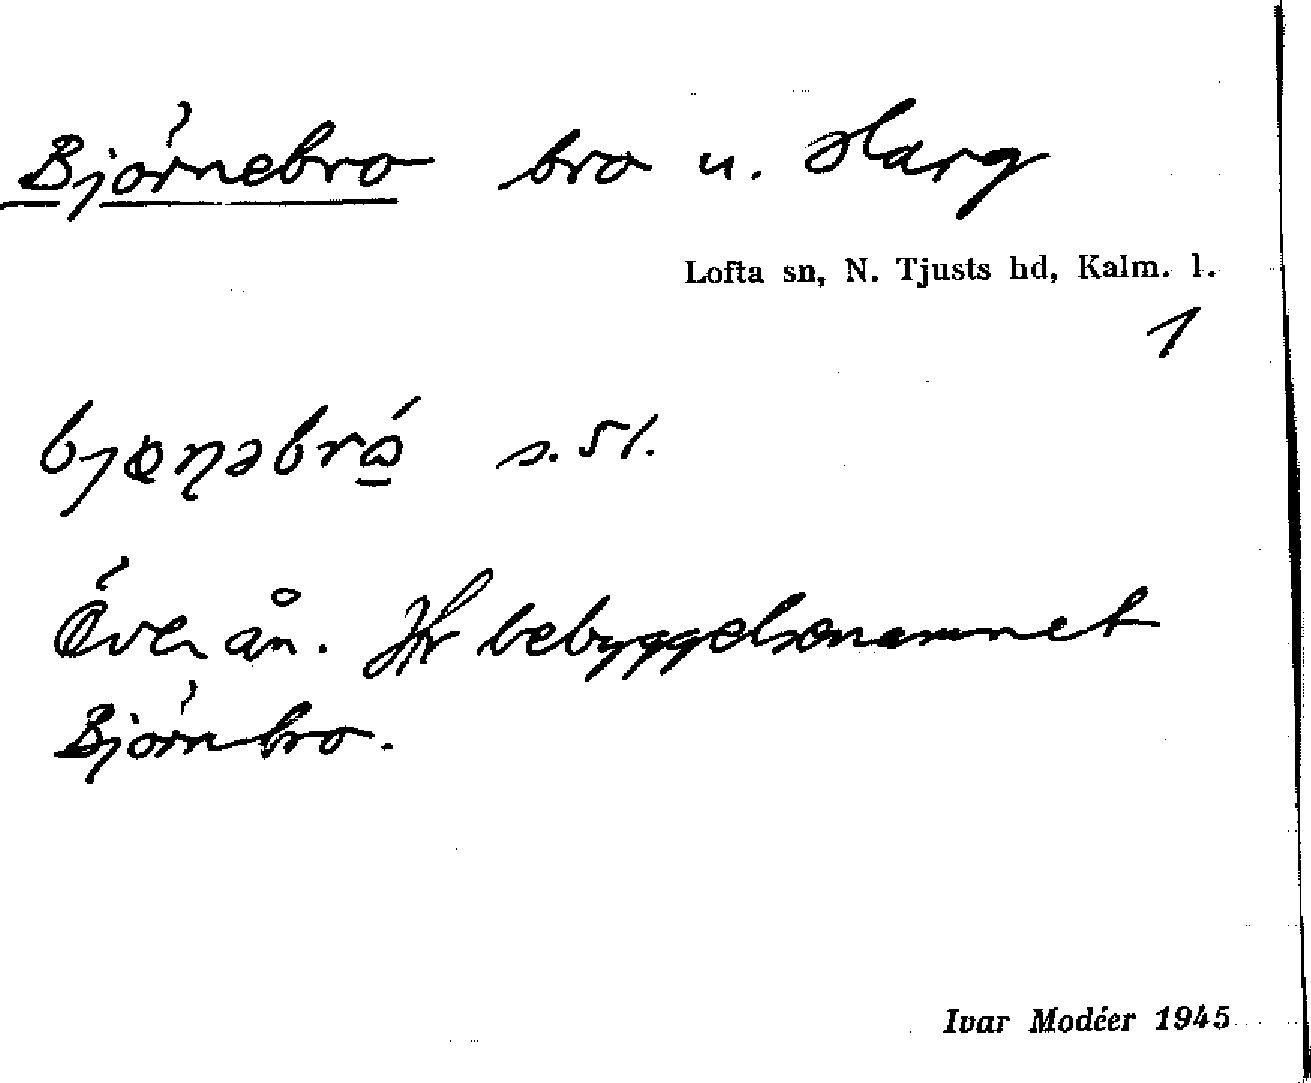 Björnebro bro u. Harg
Lofta sn, N. Tjusts hd, Kalm. l.
1
bjøɳəbrɷ́ s. st.
Över ån. Jfr bebyggelsenamnet
Björnbro.
Ivar Modéer 1945